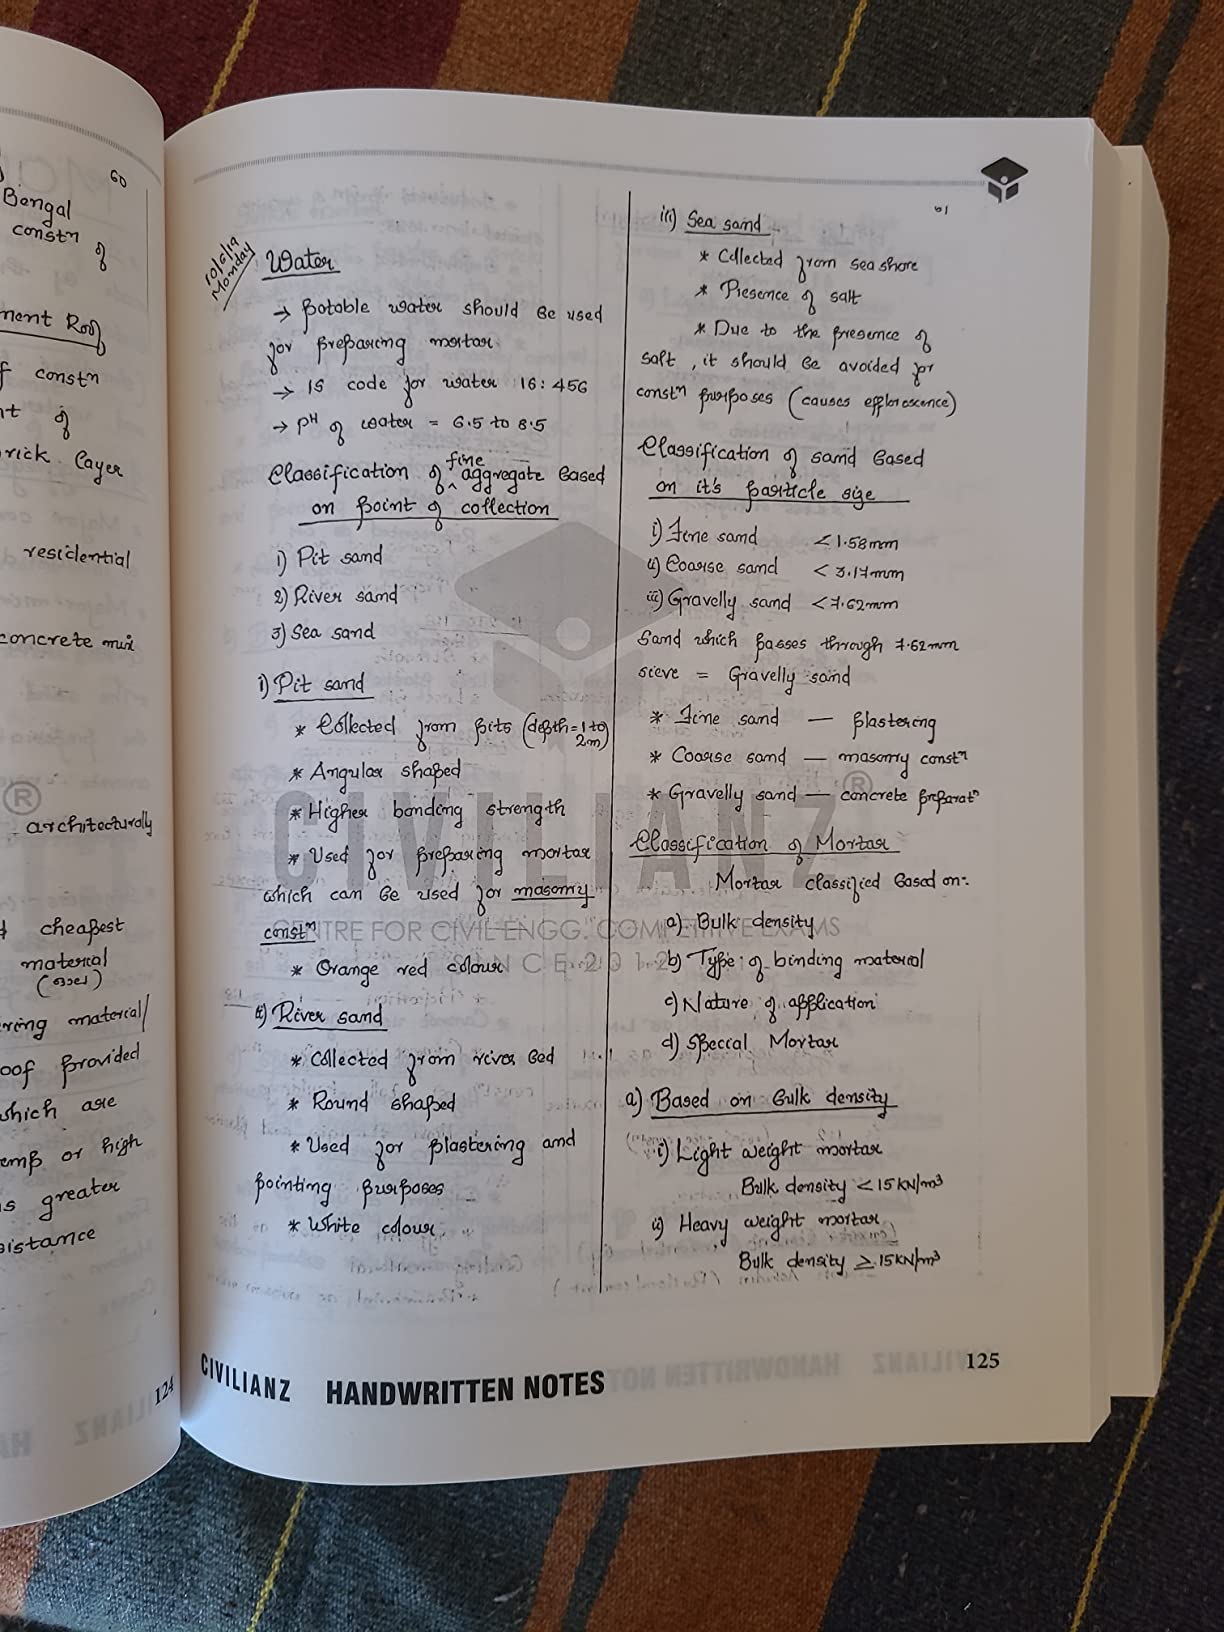 60
Bengal
constn of
ment Roof
f constn
nt of
rick layer
residential
concrete mix
®
architecturally
cheapest
material
ring material/
oof provided
which are
emp or high
s greater
sistance
124
10/6/19
Monday
Water
→ potable water should be used
for preparing mortar.
→ IS code for water 16:456
→ PH of water = 6.5 to 8.5
Classification of fine aggregate based
on point of collection
1) Pit sand
2) River sand
3) Sea sand
i) Pit sand
* Collected from pits (depth = 1 to 2m)
* Angular shaped
* Higher bonding strength
* Used for preparing mortar
which can be used for masonry
constn
* Orange red colour
ii) River sand
* Collected from river bed
* Round shaped
* Used for plastering and
pointing purposes
* White colour
61
iii) Sea sand
* Collected from sea shore
* Presence of salt
* Due to the presence of
salt, it should be avoided for
constn purposes (causes efflorescence)
Classification of sand based
on it's particle size
i) Fine sand <1.58mm
ii) Coarse sand < 3.17mm
iii) Gravelly sand <7.62mm
Sand which passes through 7.62mm
sieve = Gravelly sand
* Fine sand — plastering
* Coarse sand — masonry constn
* Gravelly sand — concrete preparatn
Classification of Mortar
Mortar classified based on:-
a) Bulk density
b) Type of binding material
c) Nature of application
d) Special Mortar
a) Based on bulk density
i) Light weight mortar
Bulk density < 15 KN/m³
ii) Heavy weight mortar
Bulk density ≥ 15 KN/m³
CIVILIANZ ®
CENTRE FOR CIVIL ENGG. COMPETITIVE EXAMS
SINCE 2012
CIVILIANZ HANDWRITTEN NOTES
125